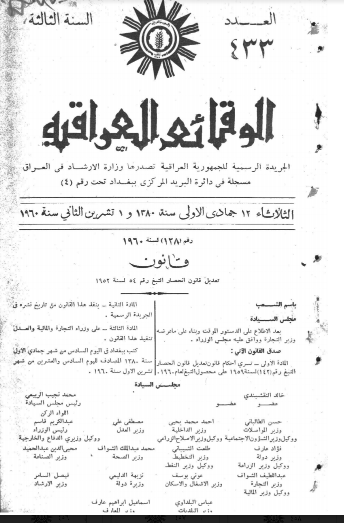 السنة الثالثة
العــدد
٤٣٣
الوقائع العراقية
الجريدة الرسمية للجمهورية العراقية تصدرها وزارة الارشاد في العراق
مسجلة في دائرة البريد المركزي ببغداد تحت رقم (٤)
الثلاثاء ١٢ جمادى الاولى سنة ١٣٨٠ و ١ تشرين الثاني سنة ١٩٦٠
رقم (١٣٨) لسنة ١٩٦٠
قانون
تعديل قانون انحصار التبغ رقم ٥٤ لسنة ١٩٥٢
باسم الشعب
مجلس السيادة
بعد الاطلاع على الدستور الموقت وبناء على ماعرضه
وزير التجارة ووافق عليه مجلس الوزراء .
صدق القانون الآتي :
المادة الاولى - تسري احكام قانون تعديل قانون انحصار
التبغ رقم (١٤٢) لسنة ١٩٥٩ على محصول التبغ لعام ١٩٦٠.
المادة الثانية - ينفذ هذا القانون من تاريخ نشره في
الجريدة الرسمية .
المادة الثالثة - على وزراء التجارة والمالية والعدل
تنفيذ هذا القانون .
كتب ببغداد في اليوم السادس من شهر جمادي الاول
سنة ١٣٨٠ المصادف لليوم السادس والعشرين من شهر
تشرين الاول سنة ١٩٦٠.
مجلس السيادة
خالد النقشبندي
عضو
عضو
محمد نجيب الربيعي
رئيس مجلس السيادة
اللواء الركن
حسن الطالباني
وزير المواصلات
ووكيل وزير الشؤون الاجتماعية
احمد محمد يحيى
وزير الداخلية
ووكيل وزير الاصلاح الزراعي
مصطفى علي
وزير العدل
عبدالكريم قاسم
رئيس الوزراء
ووكيل وزيري الدفاع والخارجية
فؤاد عارف
وزير دولة
ووكيل وزير الزراعة
طلعت الشيباني
وزير التخطيط
ووكيل وزير النفط
محمد عبدالملك الشواف
وزير الصحة
محيي الدين عبدالحميد
وزير الصناعة
عبد اللطيف الشواف
وزير التجارة
ووكيل وزير المالية
عوني يوسف
وزير الاشغال والاسكان
نزيهة الدليمي
وزيرة دولة
فيصل السامر
وزير الارشاد
عباس البلداوي
وزير البلديات
اسماعيل ابراهيم عارف
وزير المعارف